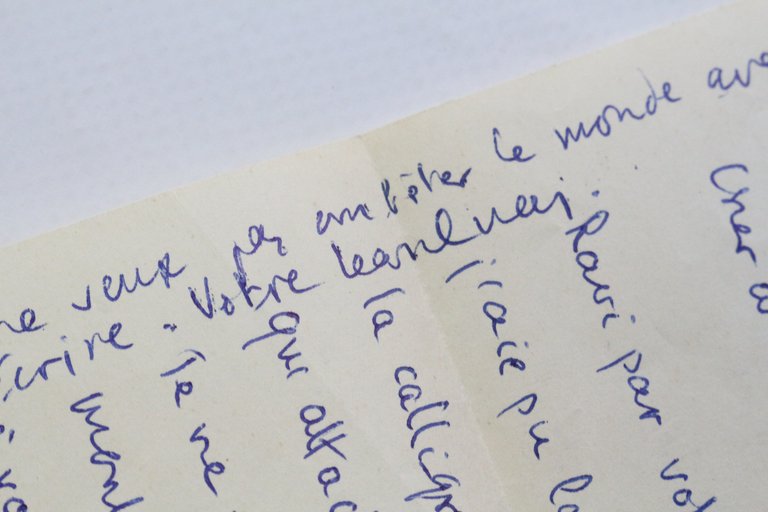 ne veux pas embêter le monde ave
écrire. Votre
Cher
Ravi par vot
j'aie pu la
la calligr
qui attac
Je ne